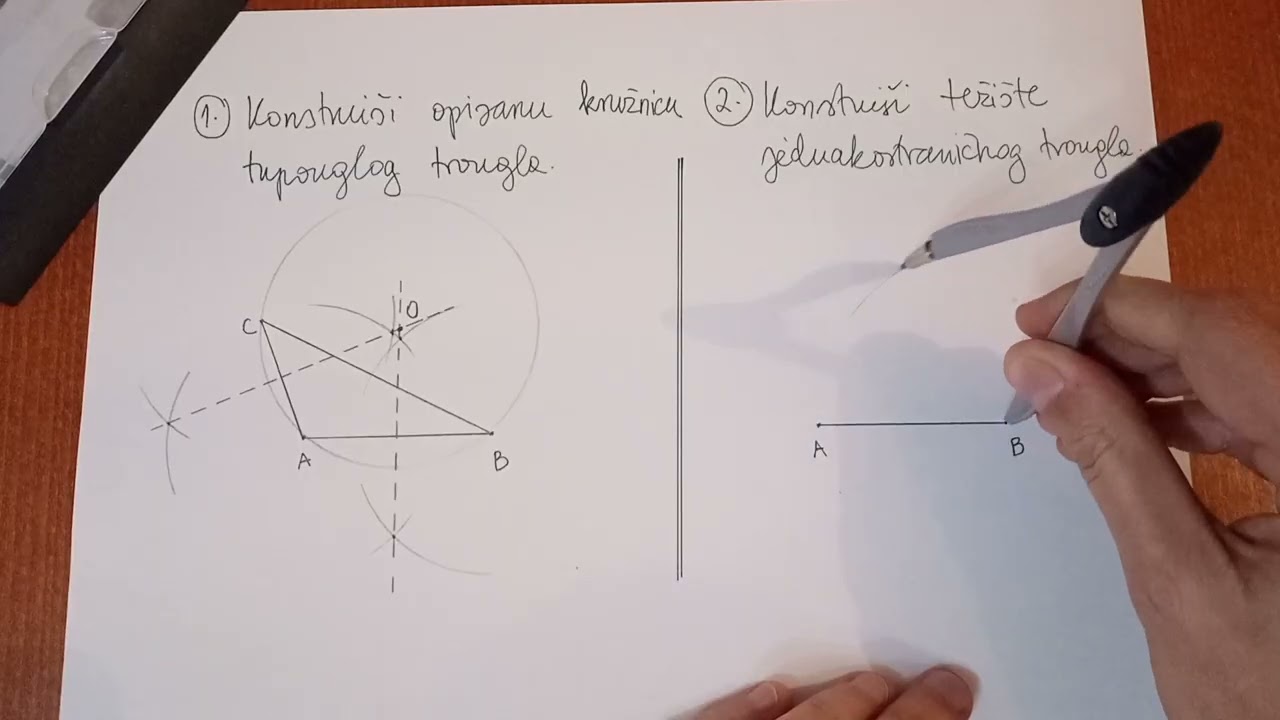 1. Konstruiši opisanu kružnicu
tupouglog trougla.
2. Konstruiši težište
jednakostraničnog trougla.
C
O
A
B
A
B